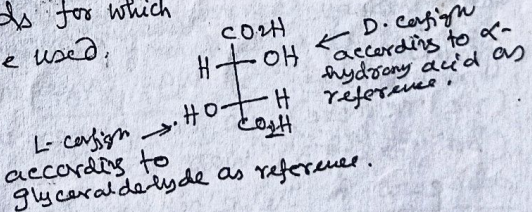 ds for which
e used.
CO2H
H OH ← D. config^n according to α-
hydroxy acid as
reference.
HO H
CO2H
L- config^n →
according to
glyceraldehyde as reference.